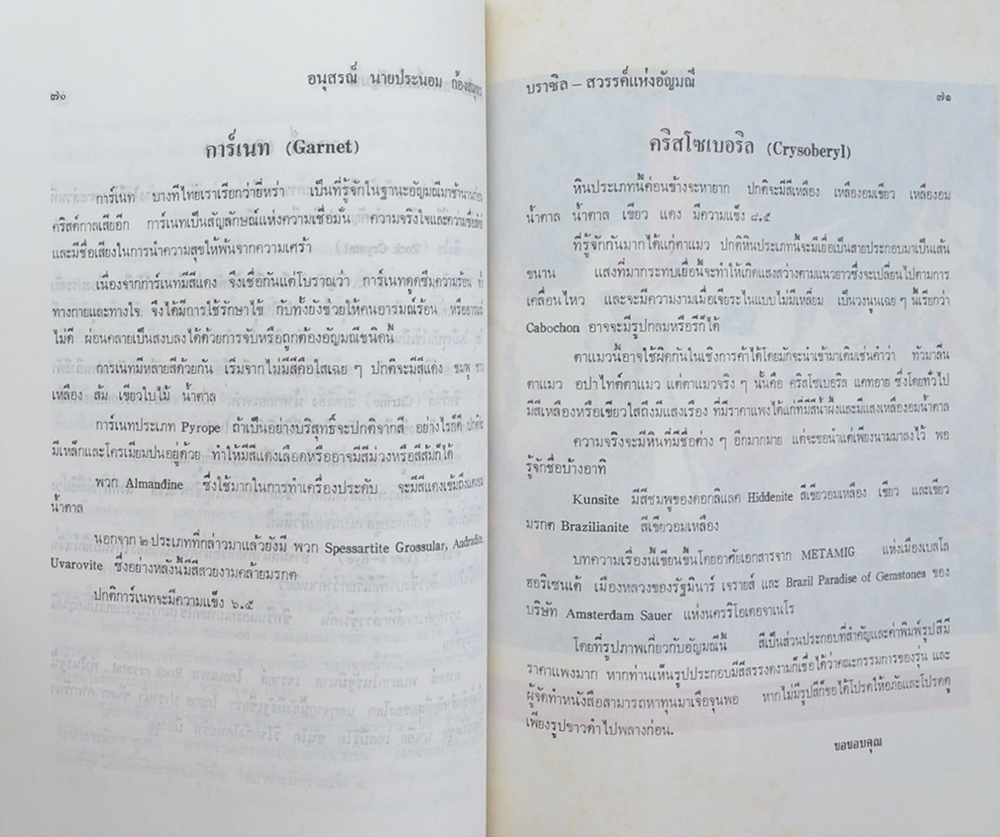 อนุสรณ์ นายประนอม ก้องสมุทร
๗๐
การ์เนท (Garnet)
การ์เนท บางทีไทยเราเรียกว่ายี่หร่า เป็นที่รู้จักในฐานะอัญมณีมาช้านานก่อน
คริสต์กาลเสียอีก การ์เนทเป็นสัญลักษณ์แห่งความเชื่อมั่น ความจริงใจและความซื่อสัตย์
และมีชื่อเสียงในการนำความสุขให้พ้นจากความเศร้า
เนื่องจากการ์เนทมีสีแดง จึงเชื่อกันแต่โบราณว่า การ์เนทดูดซึมความร้อน ทั้
ทางกายและทางใจ จึงได้มีการใช้รักษาไข้ กับทั้งยังช่วยให้คนอารมณ์ร้อน หรืออารมณ์
ไม่ดี ผ่อนคลายเป็นสงบลงได้ด้วยการจับหรือถูกต้องอัญมณีชนิดนี้
การเนทมีหลายสีด้วยกัน เริ่มจากไม่มีสีคือใสเฉย ๆ ปกติจะมีสีแดง ชมพู
เหลือง ส้ม เขียวใบไม้ น้ำตาล
การ์เนทประเภท Pyrope ถ้าเป็นอย่างบริสุทธิ์จะปกติจากสี อย่างไรก็ดี ปกติจะ
มีเหล็กและโครเมียมปนอยู่ด้วย ทำให้มีสีแดงเลือดหรืออาจมีสีม่วงหรือสีส้มก็ได้
พวก Almandine ซึ่งใช้มากในการทำเครื่องประดับ จะมีสีแดงเข้มถึงแดงอม
น้ำตาล
นอกจาก ๒ ประเภทที่กล่าวมาแล้วยังมี พวก Spessartite Grossular, Andradite,
Uvarovite ซึ่งอย่างหลังนี้มีสีสวยงามคล้ายมรกต
ปกติการ์เนทจะมีความแข็ง ๖.๕
บราซิล – สวรรค์แห่งอัญมณี
๗๑
คริสโซเบอริล (Crysoberyl)
หินประเภทนี้ค่อนข้างจะหายาก ปกติจะมีสีเหลือง เหลืองอมเขียว เหลืองอม
น้ำตาล น้ำตาล เขียว แดง มีความแข็ง ๘.๕
ที่รู้จักกันมากได้แก่ตาแมว ปกติหินประเภทนี้จะมีเยื่อเป็นสายประกอบมาเป็นเส้น
ขนาน แสงที่มากระทบเยื่อนี้จะทำให้เกิดแสงสว่างตามแนวยาวซึ่งจะเปลี่ยนไปตามการ
เคลื่อนไหว และจะมีความงามเมื่อเจียระไนแบบไม่มีเหลี่ยม เป็นวงนูนเฉย ๆ นี้เรียกว่า
Cabochon อาจจะมีรูปกลมหรือรีก็ได้
ตาแมวนี้อาจใช้ผิดกันในเชิงการค้าได้โดยมักจะนำเข้ามาเติมเช่นคำว่า ทัวมาลีน
ตาแมว อปาไทต์ตาแมว แต่ตาแมวจริง ๆ นั้นคือ คริสโซเบอริล แคทอาย ซึ่งโดยทั่วไป
มีสีเหลืองหรือเขียวใสถึงมีแสงเรือง ที่มีราคาแพงได้แก่ที่มีสีน้ำผึ้งและมีแสงเหลืองอมน้ำตาล
ความจริงจะมีหินที่มีชื่อต่าง ๆ อีกมากมาย แต่จะขอนำแต่เพียงนามมาลงไว้ พอ
รู้จักชื่อบ้างอาทิ
Kunsite มีสีชมพูของดอกลิแลค Hiddenite สีเขียวอมเหลือง เขียว และเขียว
มรกต Brazilianite สีเขียวอมเหลือง
บทความเรื่องนี้เขียนขึ้นโดยอาศัยเอกสารจาก METAMIG แห่งเมืองเบลโล
ฮอริเซนเต้ เมืองหลวงของรัฐมินาร์ เจรายส์ และ Brazil Paradise of Gemstones ของ
บริษัท Amsterdam Sauer แห่งนครริโอเดอจาเนโร
โดยที่รูปภาพเกี่ยวกับอัญมณีนี้ สีเป็นส่วนประกอบที่สำคัญและค่าพิมพ์รูปสี่มี
ราคาแพงมาก หากท่านเห็นรูปประกอบมีสีสรรงดงามก็เชื่อได้ว่าคณะกรรมการของรุ่น และ
ผู้จัดทำหนังสือสามารถหาทุนมาเจือจุนพอ หากไม่มีรูปสีก็ขอได้โปรดให้อภัยและโปรดดู
เพียงรูปขาวดำไปพลางก่อน.
ขอขอบคุณ